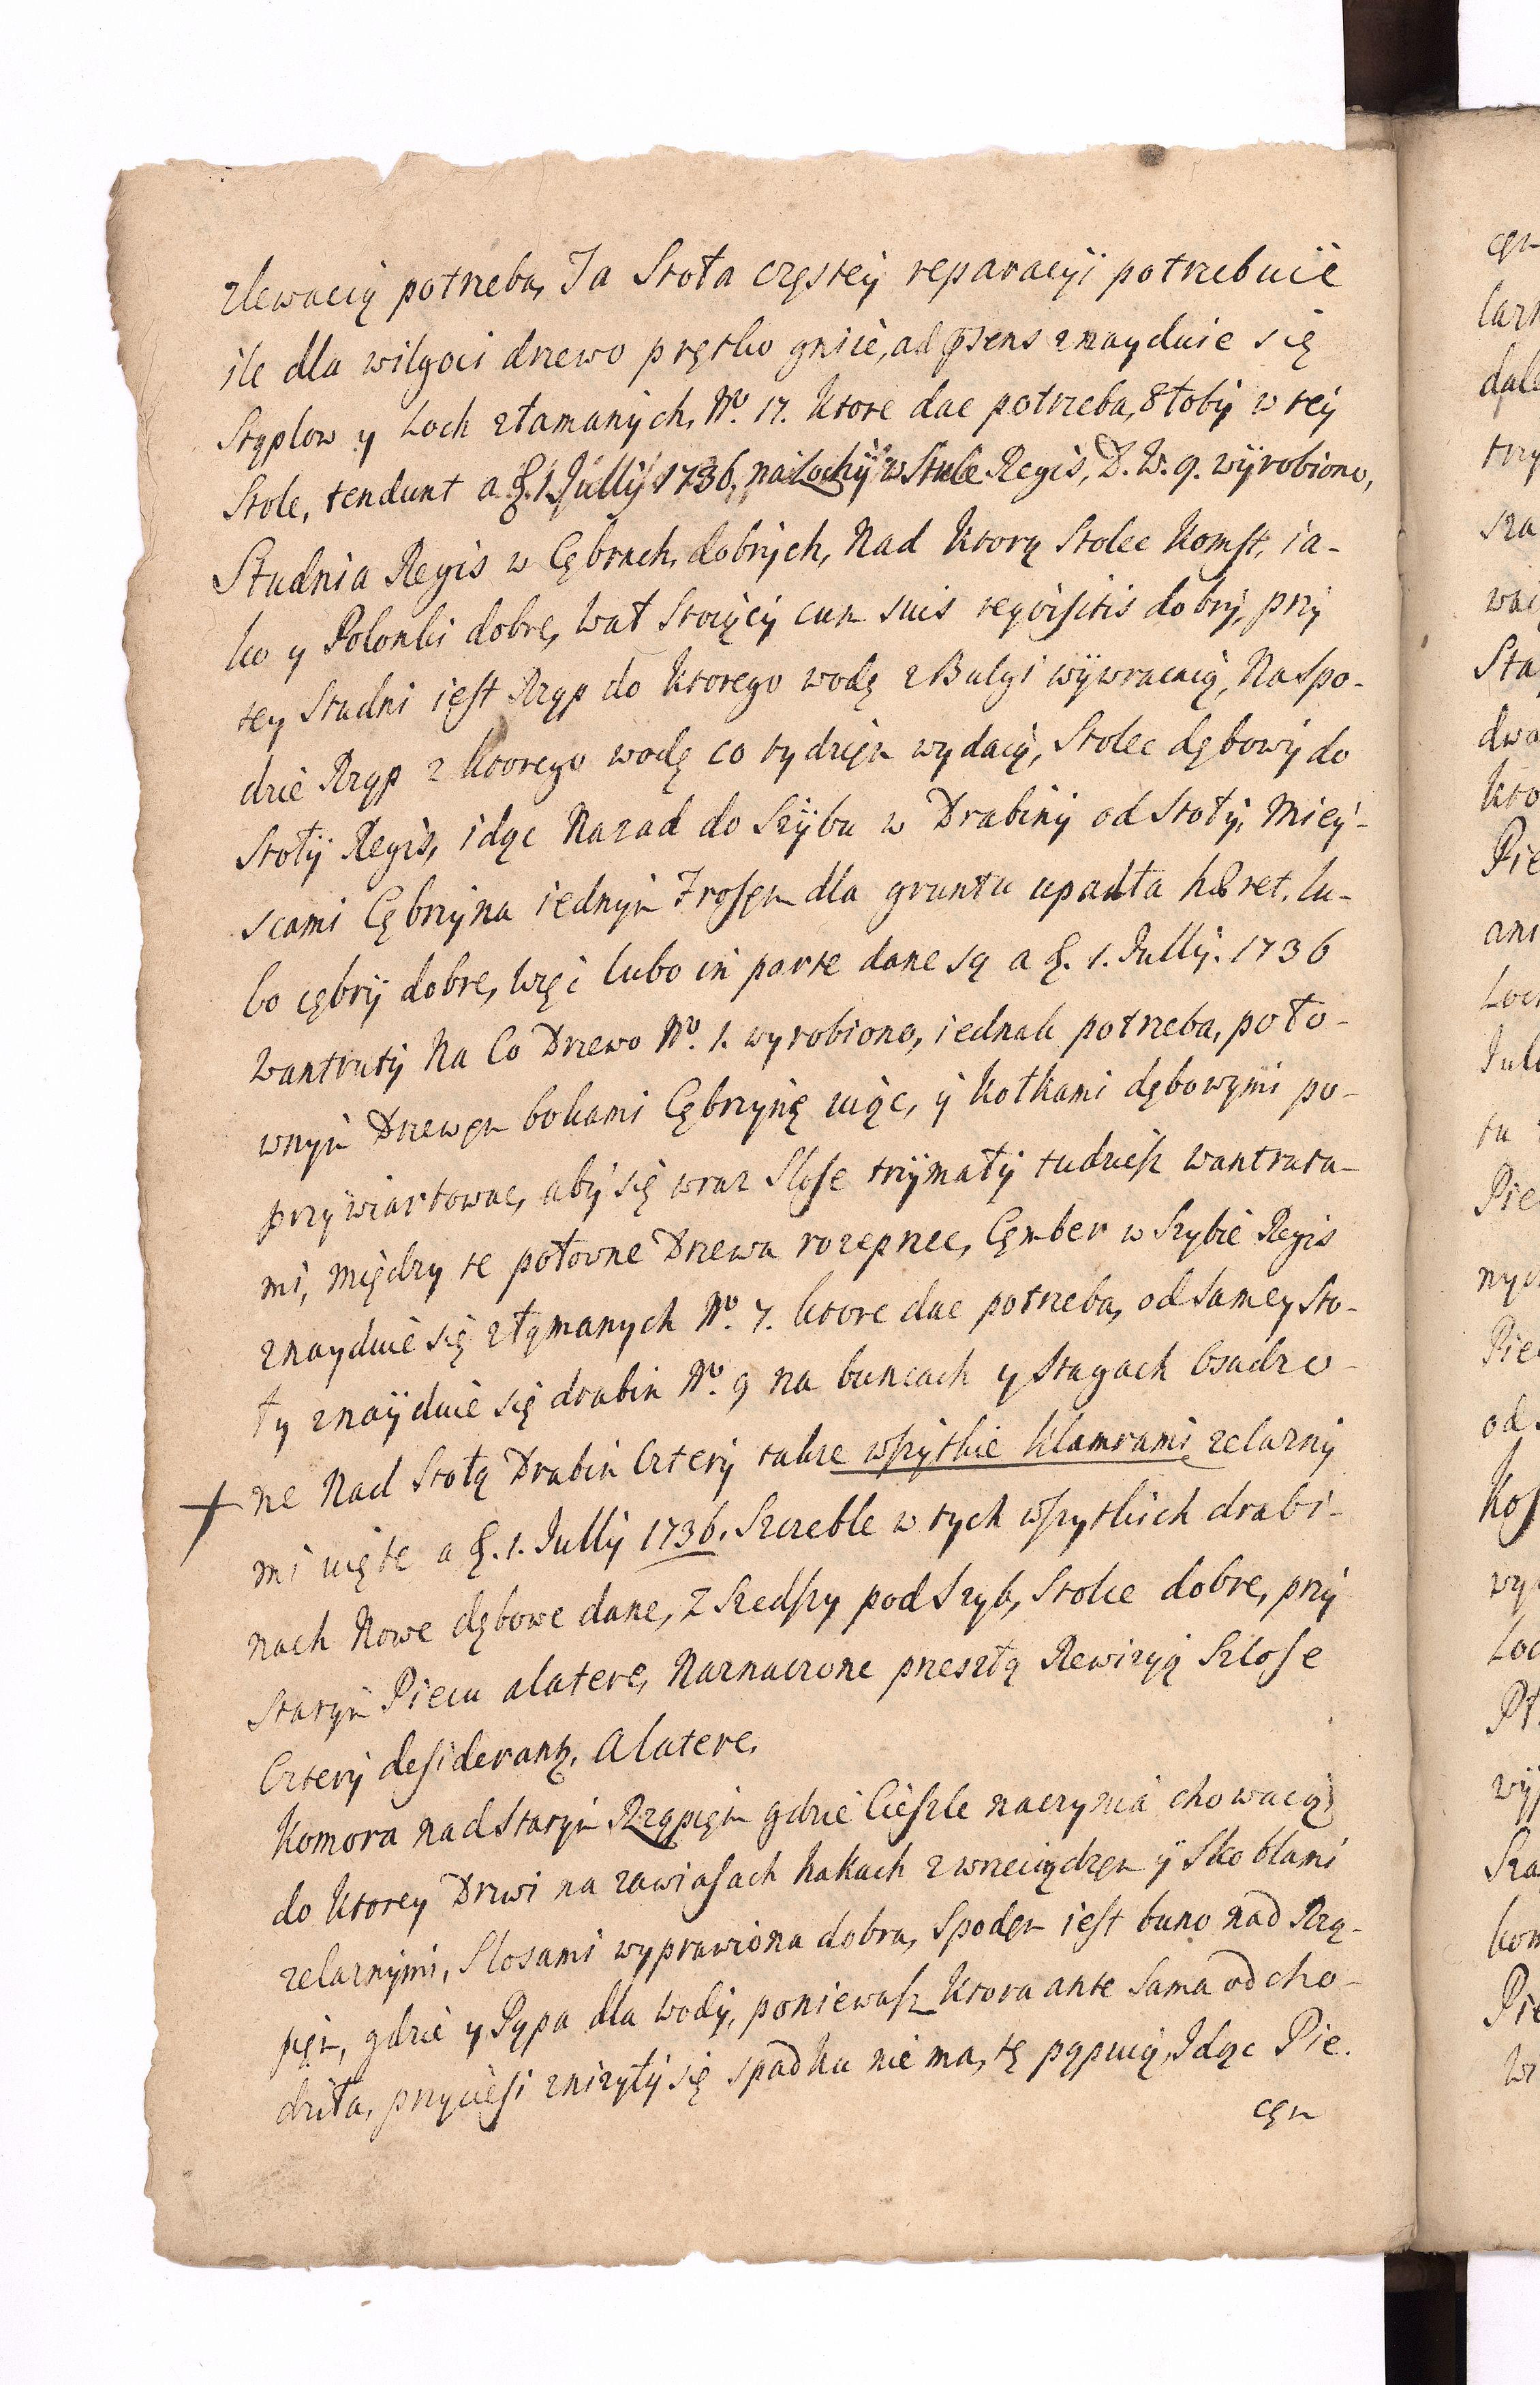 zlewacią potrzeba, Ta Stoła częstey reparacyi potrzebuie
ile dla wilgoci drzewo prętko gniie, ad psens znayduie się
Stęplow y Loch złamanych, No. 17. Ktore dac potrzeba, 8 łoby w tey
Stole, tendunt a 1. Jullij 1736, na Lochy w Stule Regis, D. W. 9. wyrobiono,
Studnia Regis w Cębrach dobrych, Nad Ktorą Stolec Komst, ia-
ko y Polonki dobre, wał Stoięcy cum suis reqvisitis dobry, przy
tey Studni iest Rząp do Ktorego wodę z Bulgi wywracaią, Naspo-
dzie Rząp z Ktorego wodę co tydzięn wydaią, Stolec dębowy do
Stoły Regis, idąc Nazad do Szybu w Drabiny od Stoły, Miey-
scami Cębrzyna iednym Trosęm dla gruntu upadła hæret, lu-
bo cębry dobre, Węc lubo in parte dane są a 1. Jullij. 1736
Wantruty Na Co Drzewo No. 1. wyrobiono, iednak potrzeba, poło-
wnym Drzewęm bokami Cębrzynę uiąc, y Kołkami dębowymi po-
przywiartowac, aby się wraz Slose trzymały tudziesz wantruta-
mi, między te połowne Drzewa rozeprzec, Cęmber w Szybie Regis
znayduie się złęmanych No. 7. Ktore dac potrzeba, od Samey Sto-
ły znayduie się drabin No. 9 na buncach y Stagach Osadzo-
+ ne Nad Stołą Drabin Cztery takze wszytkie Klamrami zelazny
mi uięte a 1. Jullij 1736. Szczeble w tych wszytkich drabi-
nach Nowe dębowe dane, Zszedszy pod Szyb, Stolce dobre, przy
Starym Piecu alatere, Naznaczone przeszłą Rewizyą Szlose
Cztery desiderant. Alatere.
Komora nad Starym Rząpięm gdzie Cieszle naczynia chowaią
do Ktorey Drzwi na zawiasach hakach z wrzeciądzęm y Skoblami
zelaznymi, Slosami wyprawiona dobra, Spodęm iest buno nad Rzą-
pięm, gdzie y Pępa dla Wody, poniewasz Ktora ante Sama odcho-
dziła, przyciesi znizyły się spadku nie ma, tę pępuią, Idąc Pie.
cęm